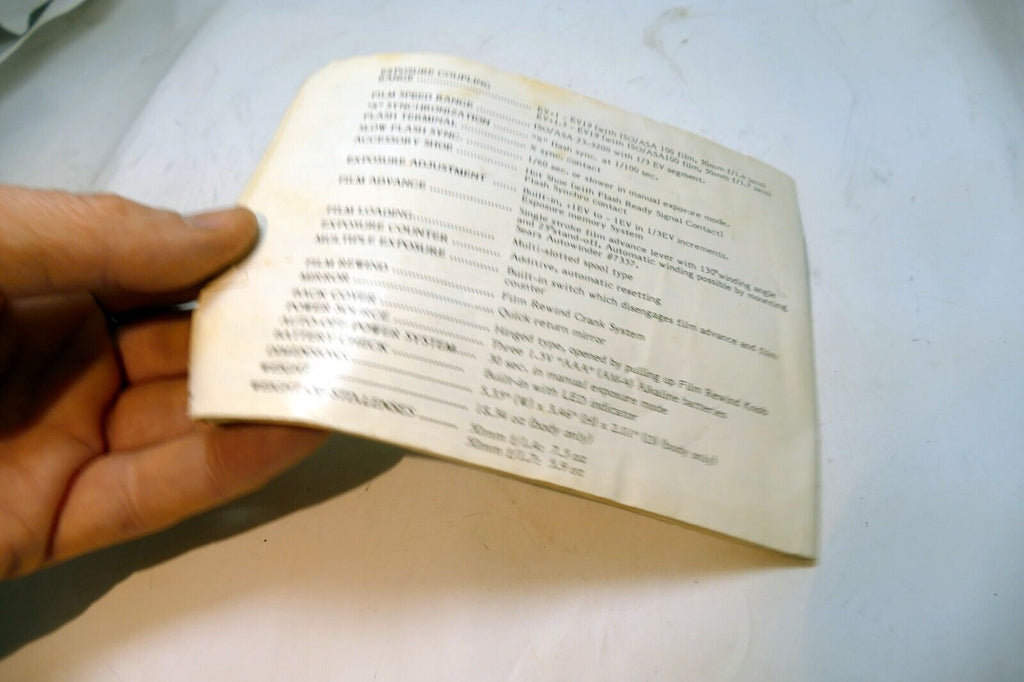 EXPOSURE COUPLING
RANGE EV-1 - EV19 (with ISO/ASA 100 film, 50mm f/1.4 lens)
EV19 (with ISO/ASA100 film, 50mm f/1.7 lens)
FILM SPEED RANGE ISO/ASA 25-3200 with 1/3 EV segment.
"X" SYNCHRONIZATION "X" flash sync. at 1/100 sec.
FLASH TERMINAL X sync. contact
SLOW FLASH SYNC. 1/60 sec. or slower in manual exposure mode.
ACCESSORY SHOE Hot Shoe (with Flash Ready Signal Contact)
Flash Synchro contact
EXPOSURE ADJUSTMENT Built-in, +1EV to - 1EV in 1/3EV increments.
Exposure memory System
FILM ADVANCE Single stroke film advance lever with 130° winding angle
and 23° stand-off. Automatic winding possible by mounting
Sears Autowinder #7357.
FILM LOADING Multi-slotted spool type
EXPOSURE COUNTER Additive, automatic resetting
MULTIPLE EXPOSURE Built-in switch which disengages film advance and film
counter
FILM REWIND Film Rewind Crank System
MIRROR Quick return mirror
BACK COVER Hinged type, opened by pulling up Film Rewind Knob
POWER SOURCE Three 1.5V "AAA" (AM-4) Alkaline batteries
AUTO-OFF POWER SYSTEM 30 sec. in manual exposure mode
BATTERY CHECK Built-in with LED indicator
DIMENSIONS 5.35" (W) x 3.46" (H) x 2.01" (D) (body only)
WEIGHT oz (body only)
WEIGHT OF STD. LENSES 50mm f/1.4:
50mm f/1.7: